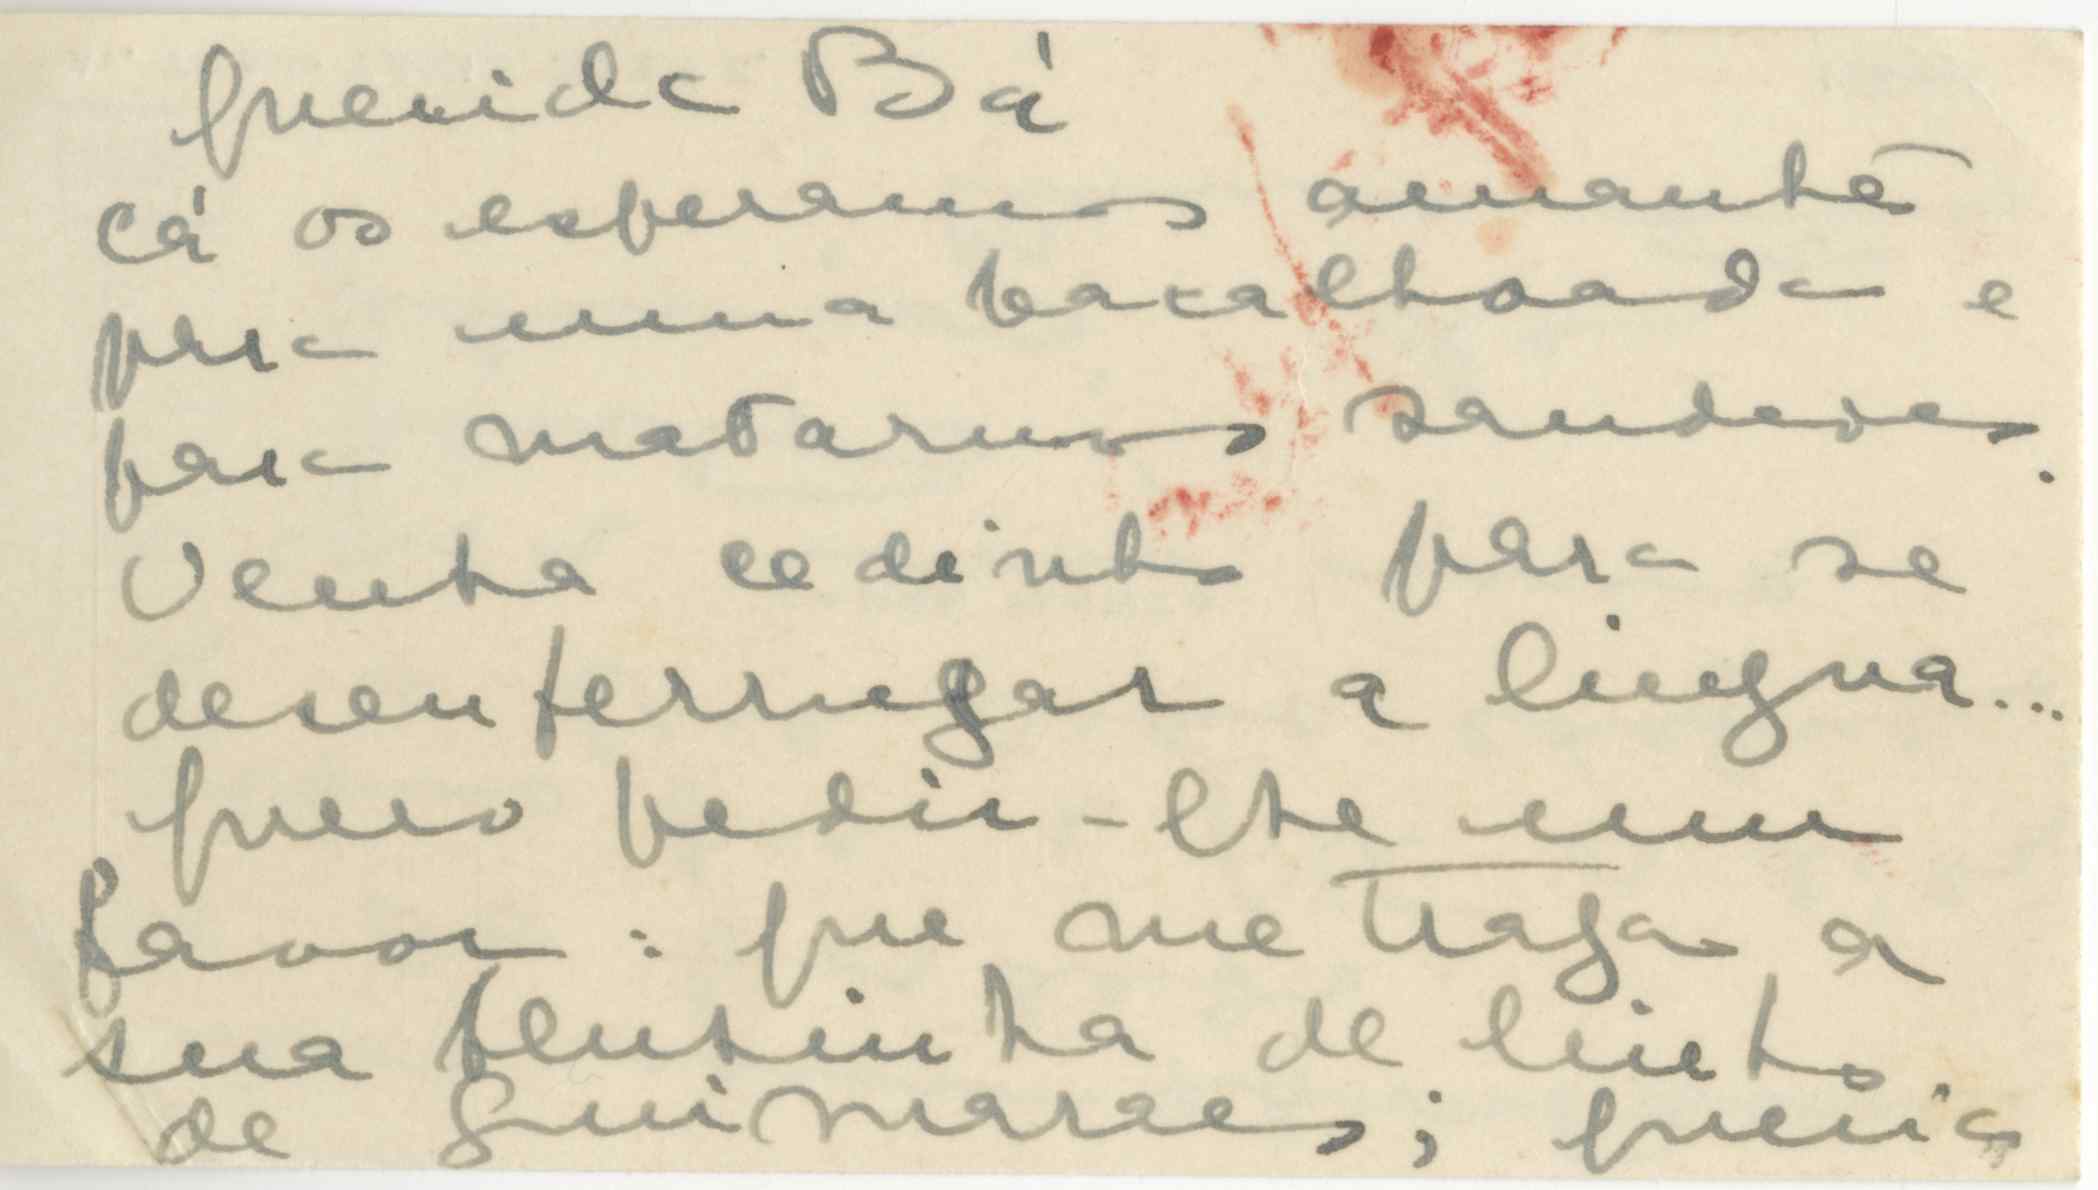 Querida Bá
cá os esperamos amanhã
para uma bacalhoada e
para matarmos saudades.
Venha cedinho para se
desenferrugar a lingua...
Quero pedir-lhe um
favor: que me traga a
sua blusinha de linho.
de Guimarães; queria